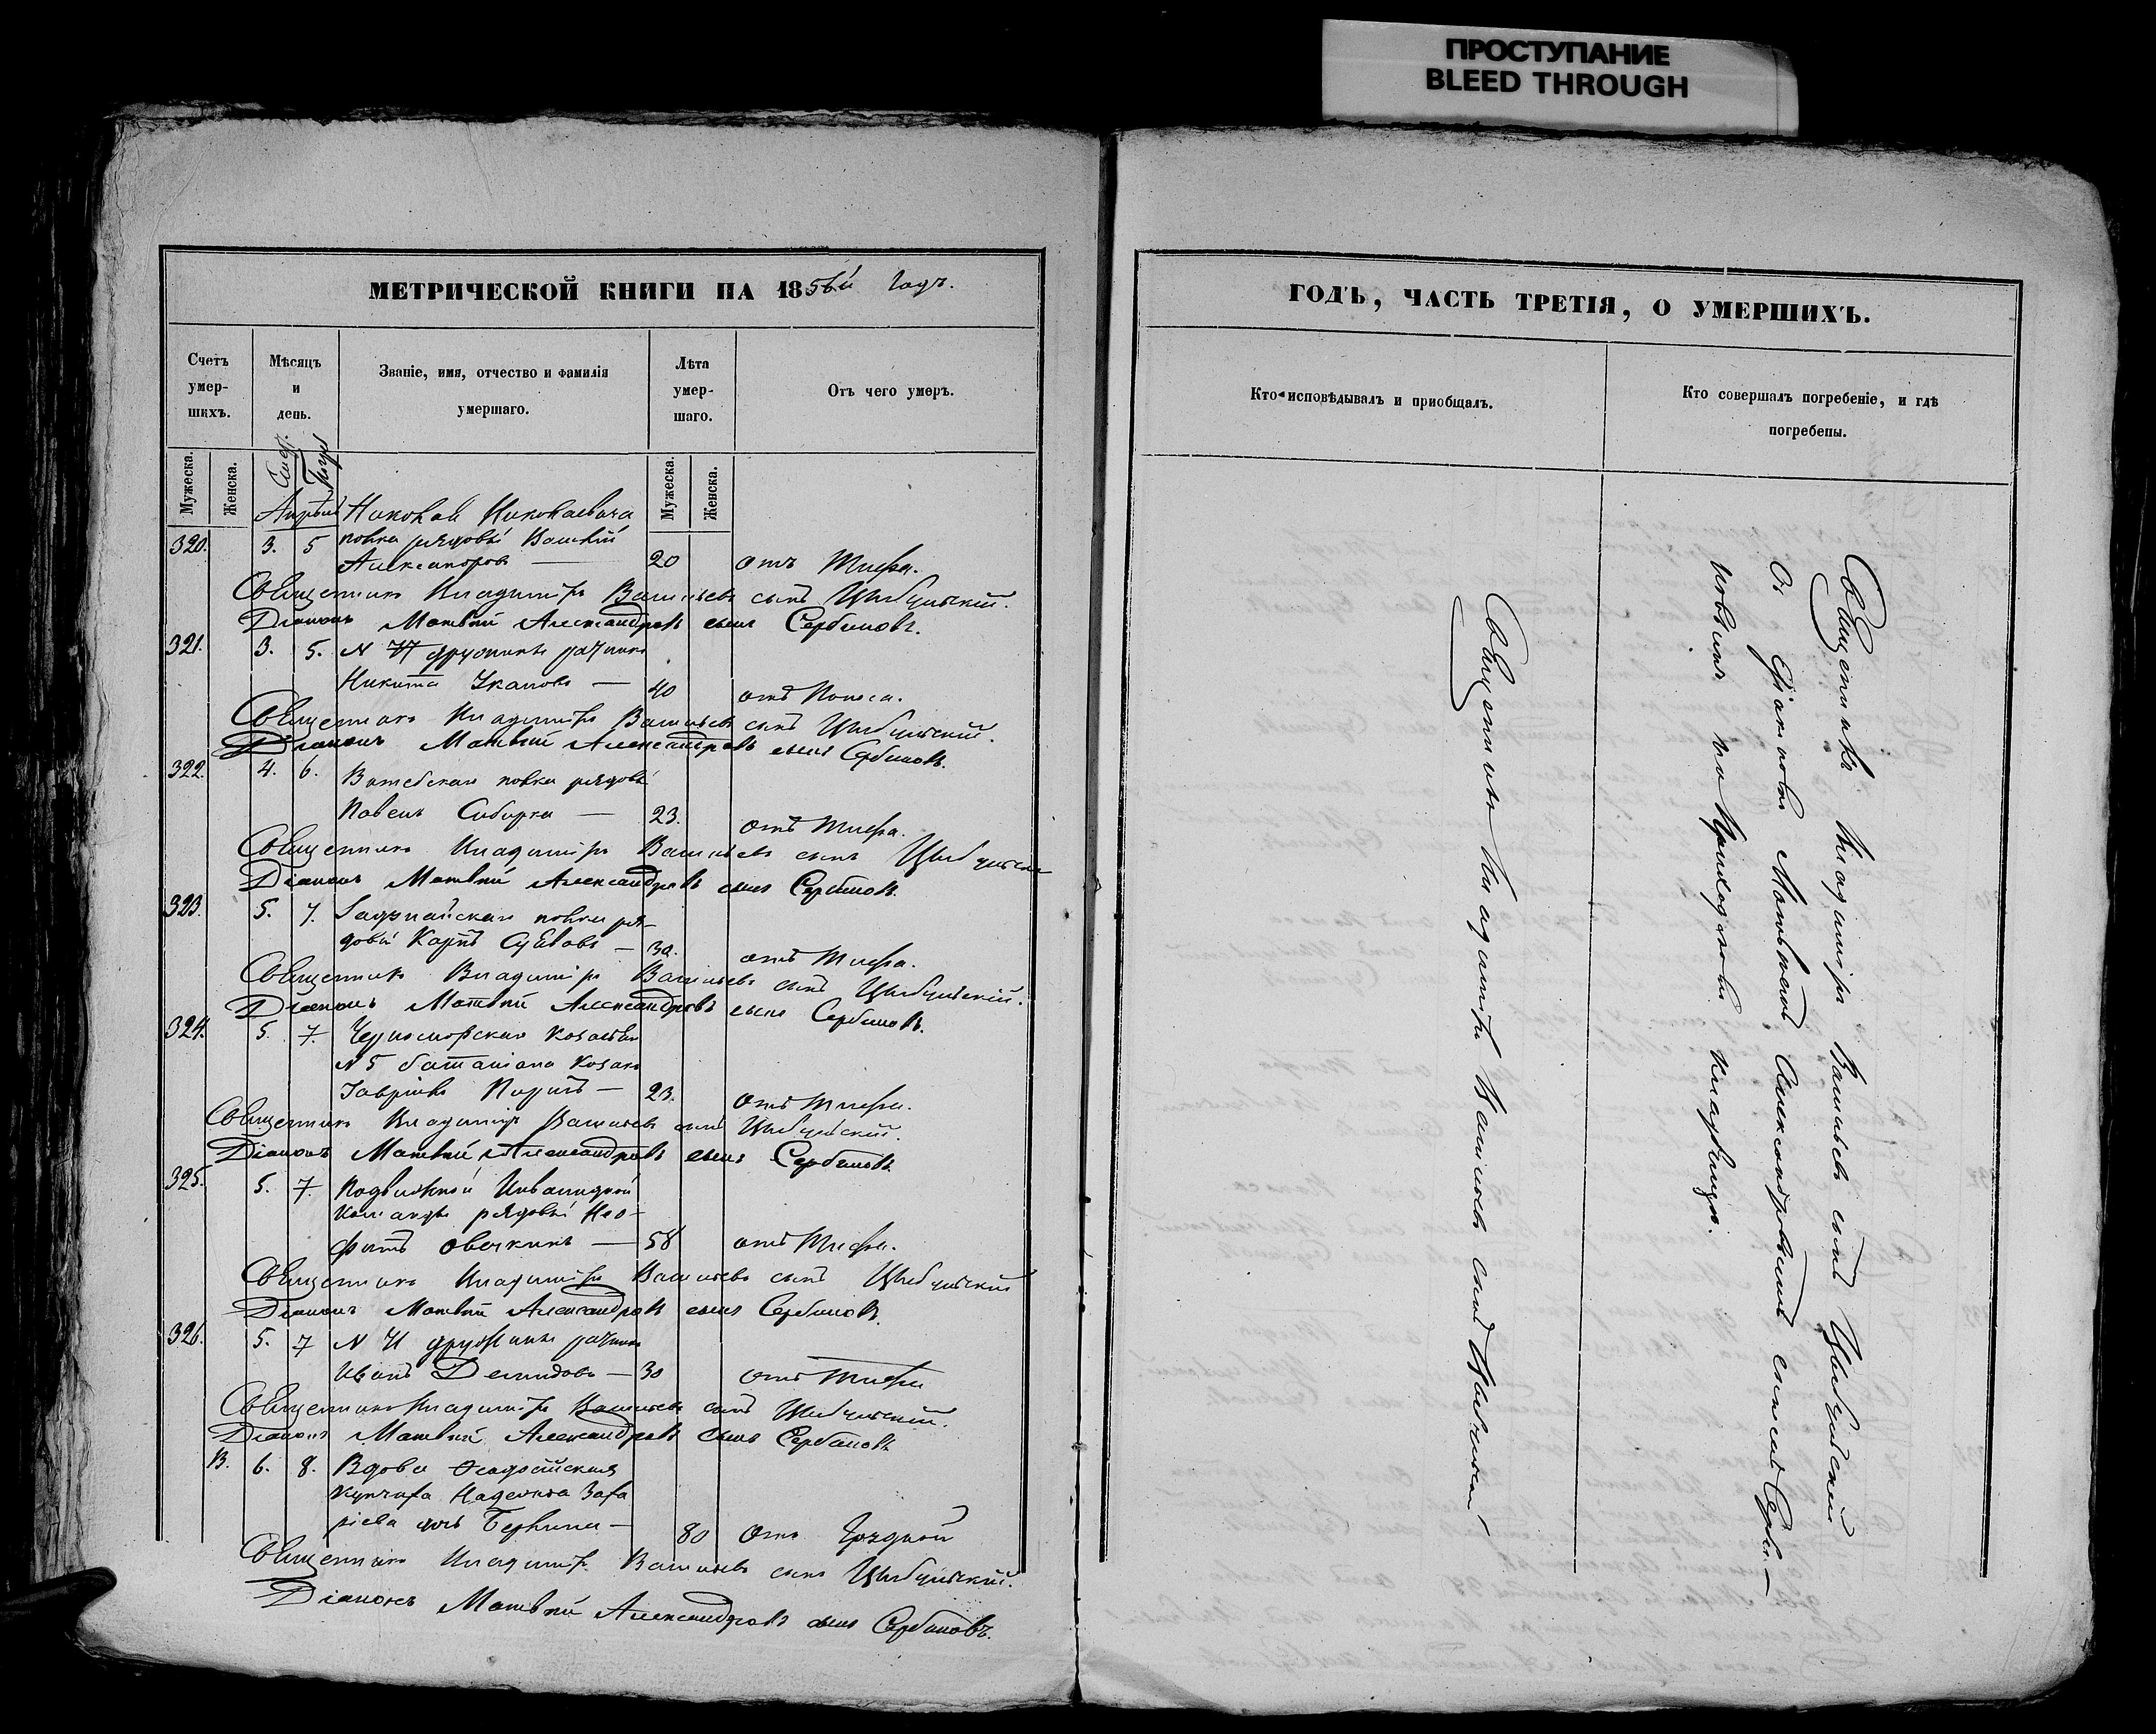 ПРОСТУПАНИЕ
BLEED THROUGH
МЕТРИЧЕСКОЙ КНИГИ НА 1856й годъ.
Счетъ умер-шихъ.
Мѣсяцъ и день.
Званіе, имя, отчество и фамилія умершаго.
Лѣта умер-шаго.
Отъ чего умеръ.
Мужеска.
Женска.
Мужеска.
Женска.
Апрѣль Николая Николаевича
320. 3. 5 полка рядовый Василій
Александровъ — 20 отъ Тифа.
Священникъ Владиміръ Васильевъ сынъ Цыбульскій.
Діаконъ Матвѣй Александровъ сынъ Сербиновъ.
321. 3. 5. N дружины ратникъ
Никита — 40 отъ Поноса.
Священникъ Владиміръ Васильевъ сынъ Цыбульскій.
Діаконъ Матвѣй Александровъ сынъ Сербиновъ.
322. 4. 6. Витебскаго полка рядовый
Павелъ Сибирка — 23. отъ Тифа.
Священникъ Владиміръ Васильевъ сынъ Цыбульскій
Діаконъ Матвѣй Александровъ сынъ Сербиновъ.
323. 5. 7. полка ря-
довый Карпъ — 30. отъ Тифа.
Священникъ Владиміръ Васильевъ сынъ Цыбульскій.
Діаконъ Матвѣй Александровъ сынъ Сербиновъ.
324. 5. 7. Черноморскаго
N 5 баталіона козакъ
Гавріилъ — 23. отъ Тифа.
Священникъ Владиміръ Васильевъ сынъ Цыбульскій.
Діаконъ Матвѣй Александровъ сынъ Сербиновъ.
325. 5. 7. Подвижной Инвалидной
команды рядовый Нео-
фитъ Овечкинъ — 58 отъ Тифа.
Священникъ Владиміръ Васильевъ сынъ Цыбульскій
Діаконъ Матвѣй Александровъ сынъ Сербиновъ.
326. 5. 7 N дружины ратникъ
Иванъ Демидовъ — 30 отъ Тифа
Священникъ Владиміръ Васильевъ сынъ Цыбульскій.
Діаконъ Матвѣй Александровъ сынъ Сербиновъ
13. 6. 8. Вдова Ѳеодосійская
купчиха Надежда Заха
ріева — 80 отъ грудной
Священникъ Владиміръ Васильевъ сынъ Цыбульскій.
Діаконъ Матвѣй Александровъ сынъ Сербиновъ.
ГОДЪ, ЧАСТЬ ТРЕТІЯ, О УМЕРШИХЪ.
Кто исповѣдывалъ и пріобщалъ.
Кто совершалъ погребеніе, и гдѣ погребены.
Священникъ Владиміръ Васильевъ сынъ Цыбульскій
Священникъ Владиміръ Васильевъ сынъ Цыбульскій
съ Діакономъ Матвѣемъ Александровымъ сыномъ Серби—
новымъ на Приходскомъ кладбищѣ.